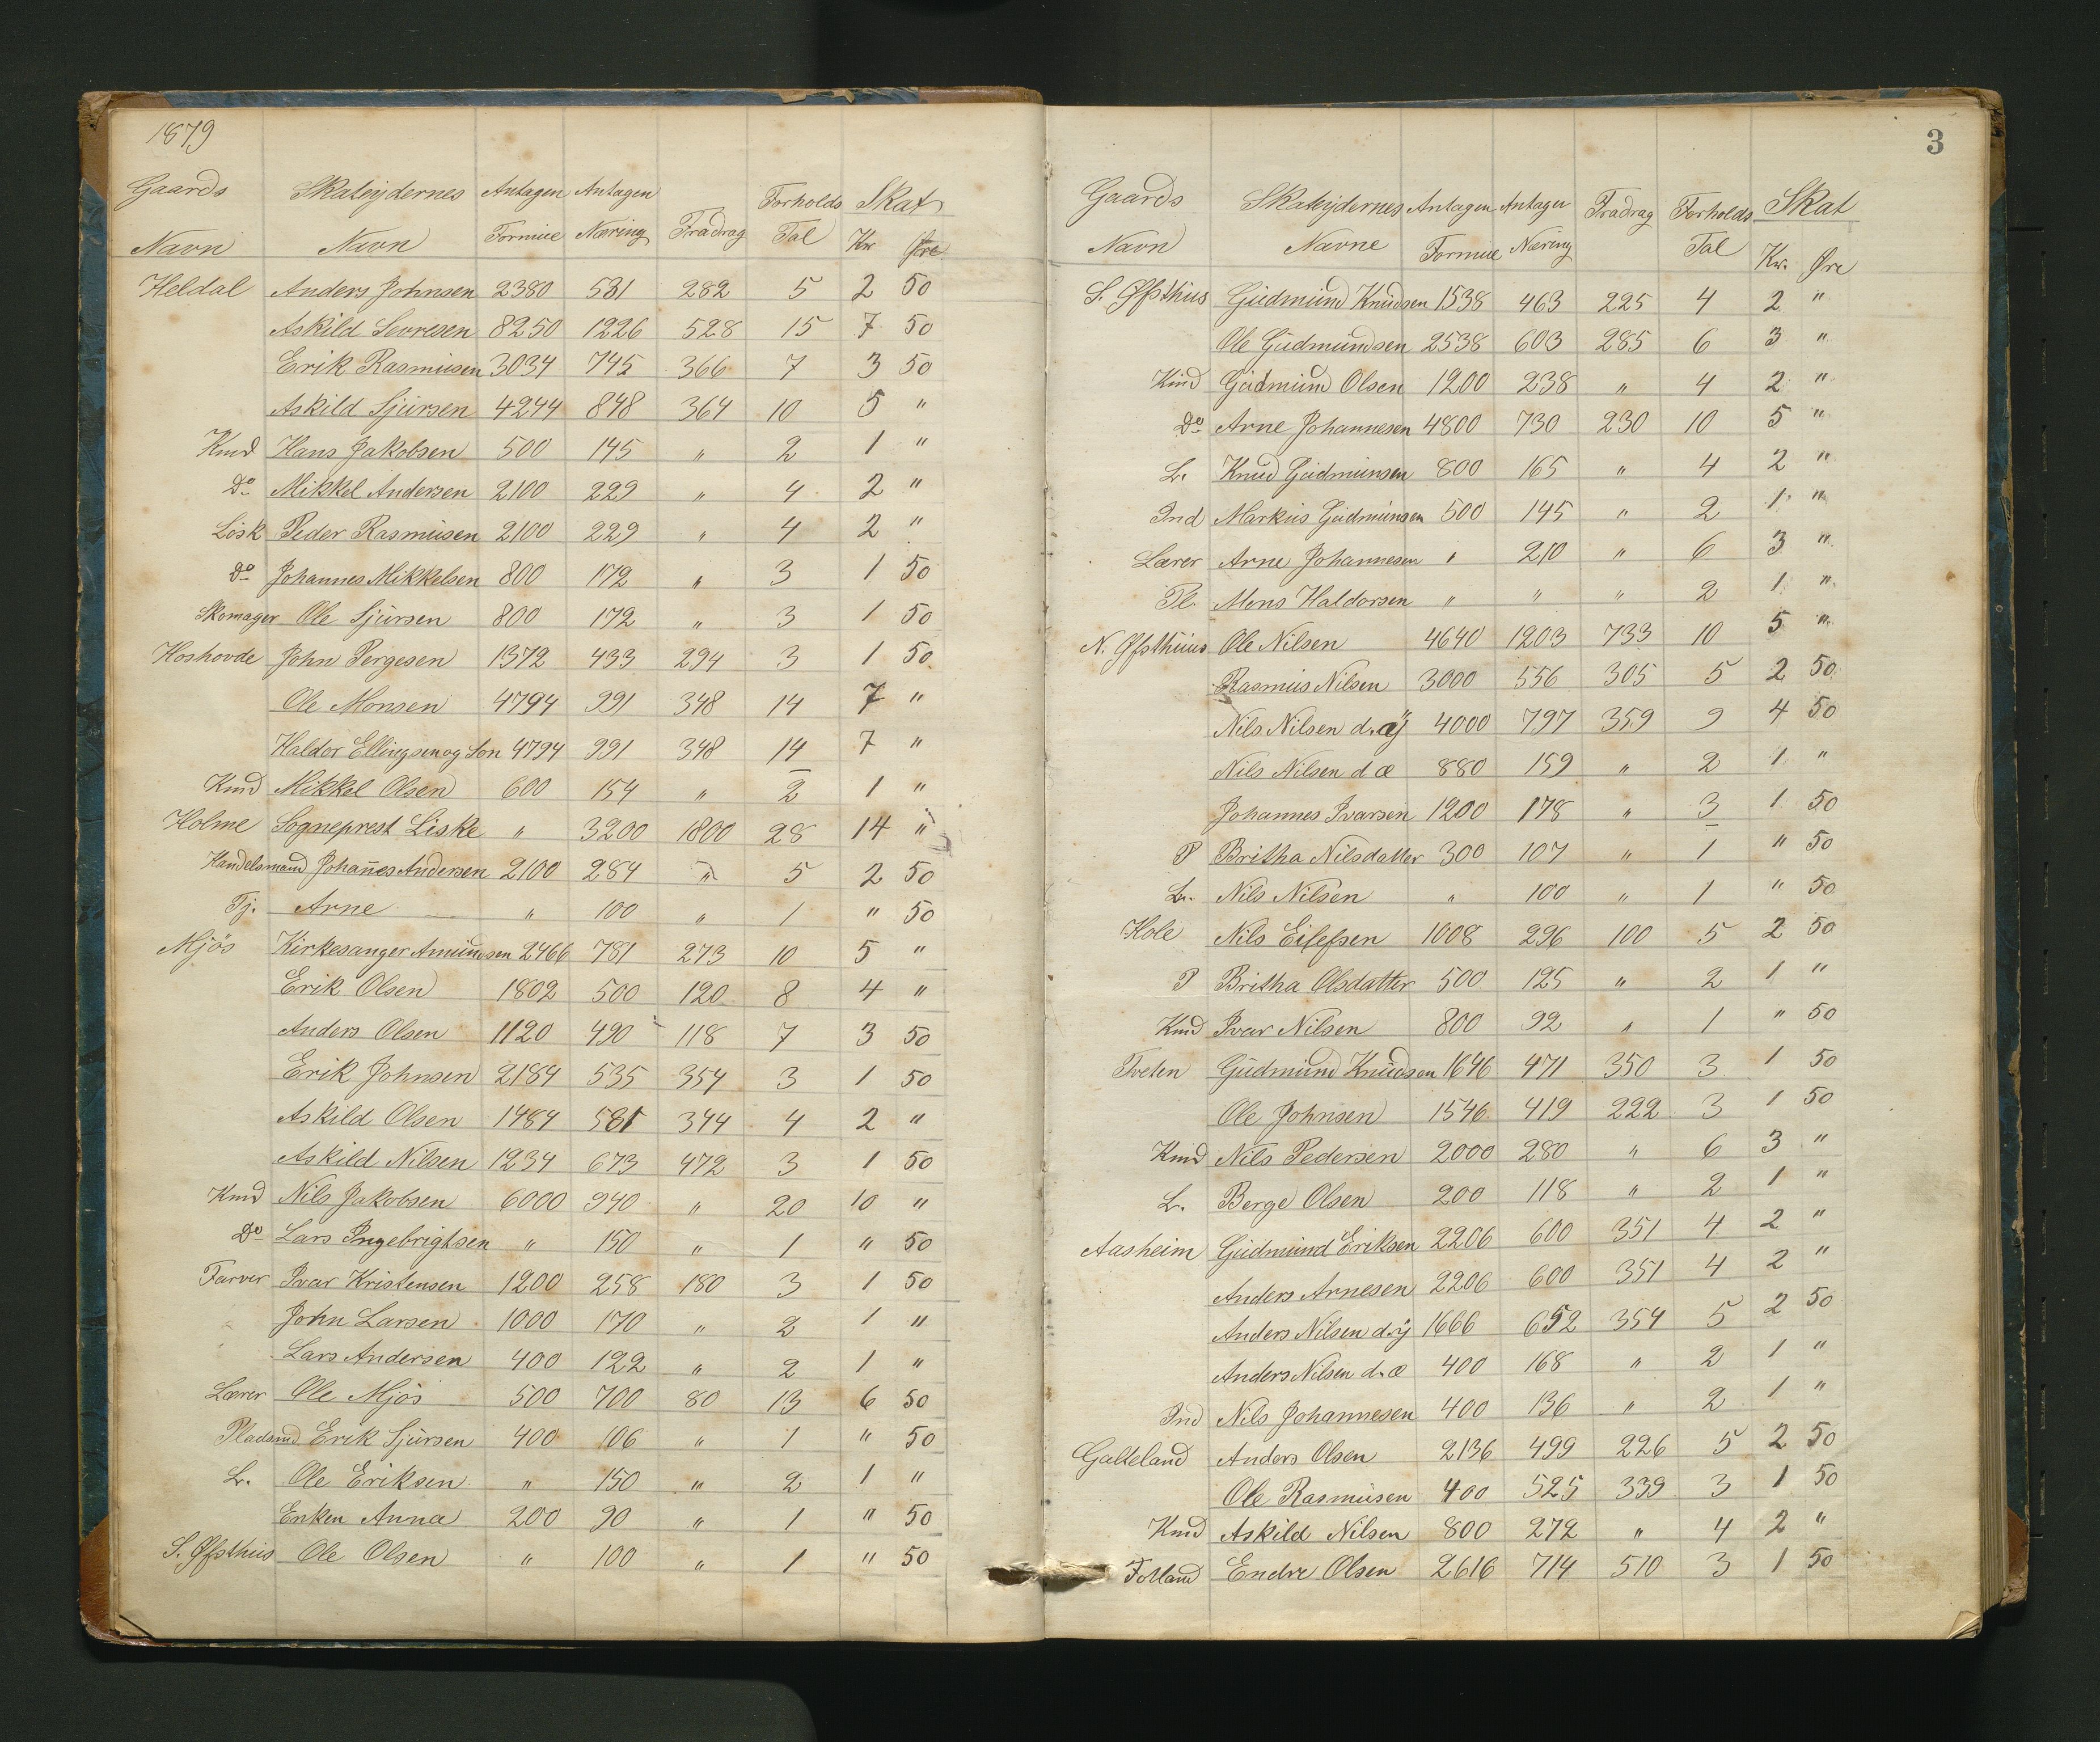 1879
Gaards Skateydernes Antagen Antagen Forholds Skat
Navn Navn Formue Næring Fradrag Tal Kr Øre
Heldal Anders Johnsen 2380 531 282 5 2 50
Askild Sevresen 8250 1226 528 15 7 50
Erik Rasmusen 3034 745 366 7 3 50
Askild Sjursen 4244 848 364 10 5 "
Kmd Hans Jakobsen 500 145 " 2 1 "
Do Mikkel Andersen 2100 229 " 4 2 "
Losk Peder Rasmusen 2100 229 " 4 2 "
do Johannes Mikkelsen 800 172 " 3 1 50
Skomager Ole Sjursen 800 172 " 3 1 50
Hoshovde John Pergesen 1372 433 294 3 1 50
Ole Monsen 4794 991 348 14 7 "
Haldor Ellingsen og Søn 4794 991 348 14 7 "
Kmd Mikkel Olsen 600 154 " 2 1 "
Holme Sogneprest Liske " 3200 1800 28 14 "
Handelsmand Johan̄es Andersen 2100 284 " 5 2 50
Tj. Arne " 100 " 1 " 50
Mjös Kirkesanger Amundsen 2466 781 273 10 5 "
Erik Olsen 1802 500 120 8 4 "
Anders Olsen 1120 490 118 7 3 50
Erik Johnsen 2184 535 354 3 1 50
Askild Olsen 1484 581 344 4 2 "
Askild Nilsen 1234 673 472 3 1 50
Kmd Nils Jakobsen 6000 940 " 20 10 "
Do Lars Ingebrigtsen " 150 " 1 " 50
Farver Ivar Kristensen 1200 258 180 3 1 50
John Larsen 1000 170 " 2 1 "
Lars Andersen 400 122 " 2 1 "
Lærer Ole Mjös 500 700 80 13 6 50
Pladsmd Erik Sjursen 400 106 " 1 " 50
L. Ole Eriksen " 150 " 2 1 "
Enken Anna 200 90 " 1 " 50
S. Øfsthus Ole Olsen " 100 " 1 " 50
3
Gaards Skateydernes Antagen Antagen Fradrag Forholds Skat
Navn Navne Formue Næring Tal Kr. Øre
S. Øfsthus Gudmund Knudsen 1538 463 225 4 2 "
Ole Gudmundsen 2538 603 285 6 3 "
Kmd Gudmund Olsen 1200 238 " 4 2 "
Do Arne Johannesen 4800 730 230 10 5 "
L. Knud Gudmunsen 800 165 " 4 2 "
Ind Markus Gudmunsen 500 145 " 2 1 "
Lærer Arne Johannesen " 210 " 6 3 "
Pl. Mons Haldorsen " " " 2 1 "
N. Øfsthus Ole Nilsen 4640 1203 733 10 5 "
Rasmus Nilsen 3000 556 305 5 2 50
Nils Nilsen d. ÿ 4000 797 359 9 4 50
Nils Nilsen d æ 880 159 " 2 1 "
Johannes Ivarsen 1200 178 " 3 1 50
P Britha Nilsdatter 300 107 " 1 " 50
L. Nils Nilsen " 100 " 1 " 50
Hole Nils Eilefsen 1008 296 100 5 2 50
P Britha Olsdatter 500 125 " 2 1 "
Kmd Ivar Nilsen 800 92 " 1 " 50
Tveten Gudmund Knudsen 1646 471 350 3 1 50
Ole Johnsen 1546 419 222 3 1 50
Kmd Nils Pedersen 2000 280 " 6 3 "
L. Berge Olsen 200 118 " 2 1 "
Aasheim Gudmund Eriksen 2206 600 351 4 2 "
Anders Arnesen 2206 600 351 4 2 "
Anders Nilsen d. ÿ 1666 652 354 5 2 50
Anders Nilsen d. æ 400 168 " 2 1 "
Ind Nils Johannesen 400 136 " 2 1 "
Galteland Anders Olsen 2136 499 226 5 2 50
Ole Rasmusen 400 525 339 3 1 50
Kmd Askild Nilsen 800 272 " 4 2 "
Endre Olsen 2616 714 510 3 1 50